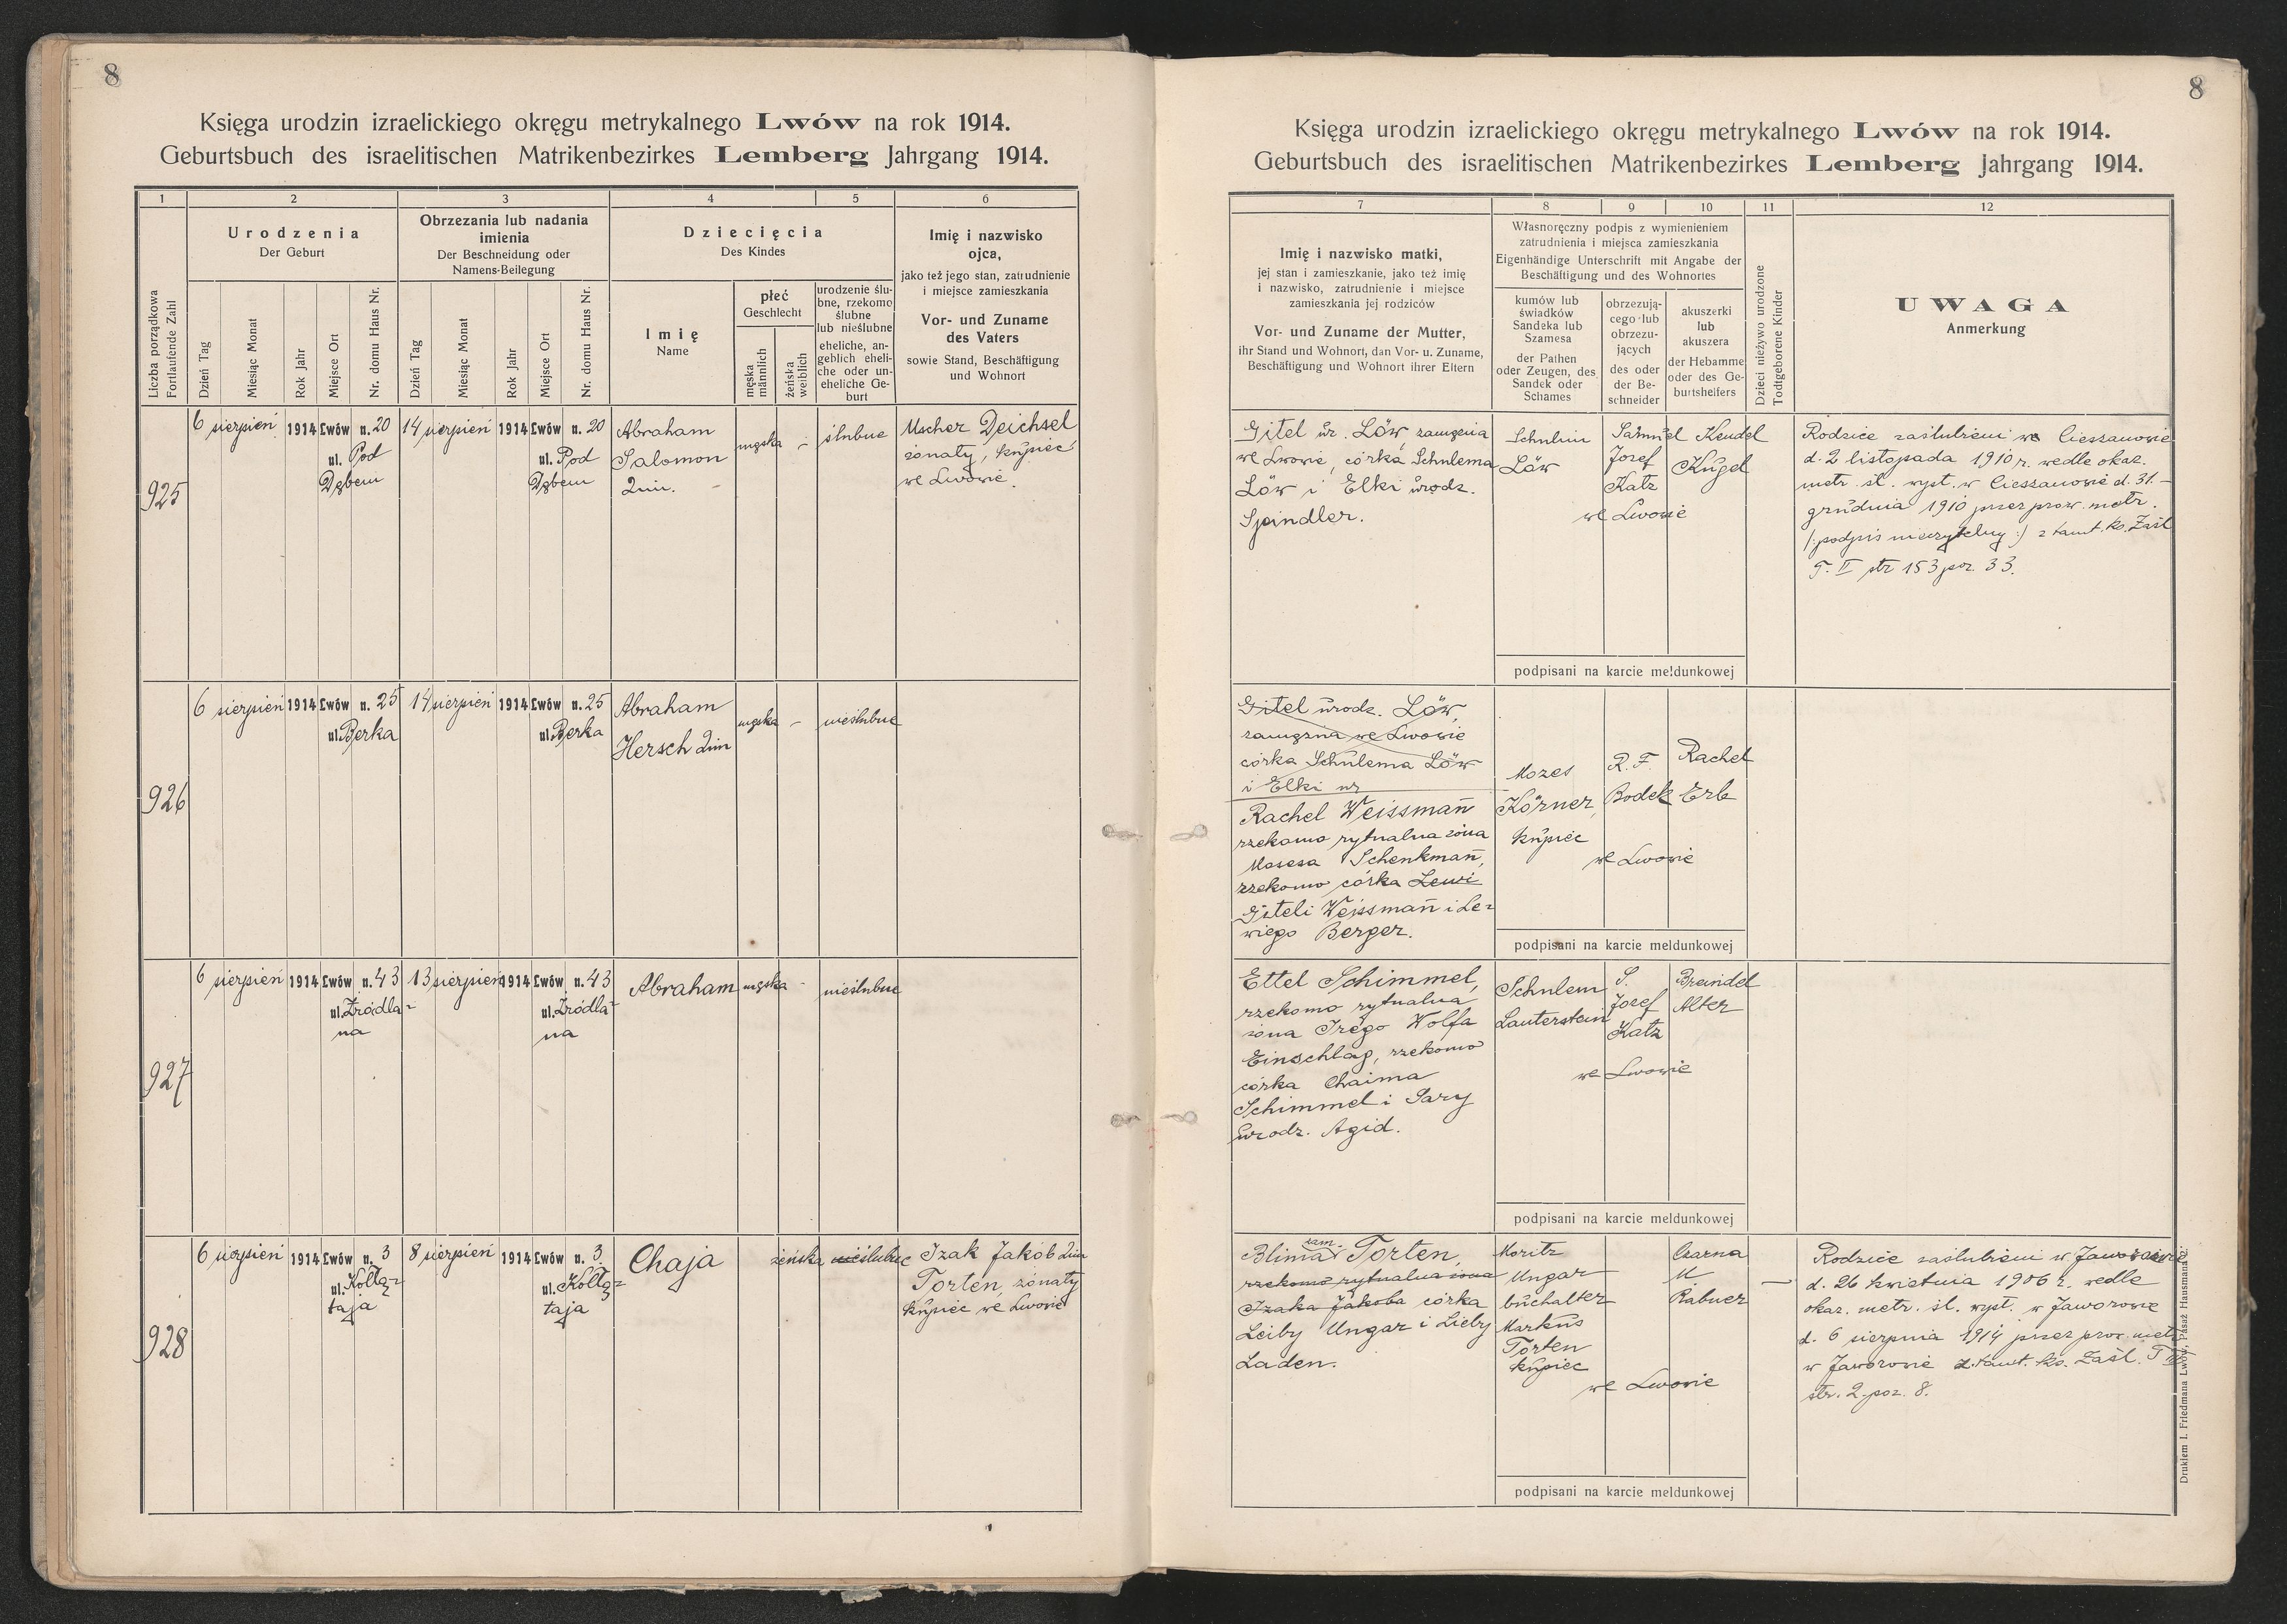 8
Księga urodzin izraelickiego okręgu metrykalnego Lwów na rok 1914.
Geburtsbuch des israelitischen Matrikenbezirkes Lemberg Jahrgang 1914.
1 2 3 4 5 6
Liczba porządkowa
Fortlaufende Zahl
Urodzenia
Der Geburt
Dzień Tag
Miesiąc Monat
Rok Jahr
Miejsce Ort
Nr. domu Haus Nr.
Obrzezania lub nadania
imienia
Der Beschneidung oder
Namens-Beilegung
Dzień Tag
Miesiąc Monat
Rok Jahr
Miejsce Ort
Nr. domu Haus Nr.
Dziecięcia
Des Kindes
Imię
Name
płeć
Geschlecht
męska
männlich
żeńska
weiblich
urodzenie ślu-
bne, rzekomo
ślubne
lub nieślubne
eheliche, an-
geblich eheli-
che oder un-
eheliche Ge-
burt
Imię i nazwisko
ojca,
jako też jego stan, zatrudnienie
i miejsce zamieszkania
Vor- und Zuname
des Vaters
sowie Stand, Beschäftigung
und Wohnort
925
6 sierpień 1914 Lwów n. 20
ul. Pod
Dębem
14 sierpień 1914 Lwów n. 20
ul. Pod
Dębem
Abraham
Salomon
2im.
męska -
ślubne
Uscher Deichsel
żonaty, kupiec
we Lwowie.
926
6 sierpień 1914 Lwów n. 25
ul. Berka
14 sierpień 1914 Lwów n. 25
ul. Berka
Abraham
Hersch 2im
męska -
nieślubne
927
6 sierpień 1914 Lwów n. 43
ul. Źródla-
na
13 sierpień 1914 Lwów n. 43
ul. Źródla-
na
Abraham
męska -
nieślubne
928
6 sierpień 1914 Lwów n. 3
ul. Kołłą-
taja
8 sierpień 1914 Lwów n. 3
ul. Kołłą-
taja
Chaja
żeńska
nieślubne
Izak Jakób 2im
Torten, żonaty
kupiec we Lwowie
8
Księga urodzin izraelickiego okręgu metrykalnego Lwów na rok 1914.
Geburtsbuch des israelitischen Matrikenbezirkes Lemberg Jahrgang 1914.
7 8 9 10 11 12
Imię i nazwisko matki,
jej stan i zamieszkanie, jako też imię
i nazwisko, zatrudnienie i miejsce
zamieszkania jej rodziców
Vor- und Zuname der Mutter,
ihr Stand und Wohnort, dan Vor- u. Zuname,
Beschäftigung und Wohnort ihrer Eltern
Własnoręczny podpis z wymienieniem
zatrudnienia i miejsca zamieszkania
Eigenhändige Unterschrift mit Angabe der
Beschäftigung und des Wohnortes
kumów lub
świadków
Sandeka lub
Szamesa
der Pathen
oder Zeugen, des
Sandek oder
Schames
obrzezują-
cego lub
obrzezu-
jących
des oder
der Be-
schneider
akuszerki
lub
akuszera
der Hebamme
oder des Ge-
burtshelfers
Dzieci nieżywo urodzone
Todtgeborene Kinder
UWAGA
Anmerkung
Gitel ur. Löw, zamężna
we Lwowie, córka Schulema
Löw i Elki urodz.
Spindler.
Schulim
Löw
Samuel
Josef
Katz
Kendel
Kugel
we Lwowie
podpisani na karcie meldunkowej
Rodzice zaślubieni we Cieszanowie
d. 2 listopada 1910 r. wedle okaz.
metr. śl. wyst. w Cieszanowie d. 31.-
grudnia 1910 przez prow. metr.
/: podpis nieczytelny :/ z tamt. ks. Zaśl
T. II str 153 poz. 33.
Gitel urodz. Löw,
zamężna we Lwowie
córka Schulema Löw
i Elki ur
Rachel Weissmañ
rzekomo rytualna żona
Mosesa Schenkmañ,
rzekomo córka Lewi
Giteli Weissmañ i Le-
wiego Berger.
Mozes
Körner,
kupiec
R. F.
Bodek
Rachel
Erb
we Lwowie
podpisani na karcie meldunkowej
Ettel Schimmel,
rzekomo rytualna
żona Srego Wolfa
Einschlag, rzekomo
córka Chaima
Schimmel i Sary
urodz. Agid.
Schulem
Lauterstein
S.
Josef
Katz
Breindel
Alter
we Lwowie
podpisani na karcie meldunkowej
zam.
Blima Torten,
rzekomo rytualna żona
Izaka Jakoba córka
Leiby Ungar i Lieby
Laden.
Moritz
Ungar
buchalter
Markus
Torten
kupiec
Czarna
M
Rabner
we Lwowie
podpisani na karcie meldunkowej
Rodzice zaślubieni w Jaworowie
d. 26 kwietnia 1906 r. wedle
okaz. metr. śl. wyst. w Jaworowie
d. 6 sierpnia 1914 przez prow. metr.
w Jaworowie z tamt. ks. Zaśl. T
str. 2 poz. 8.
Drukiem I. Friedmana Lwów, Pasaż Hausmana